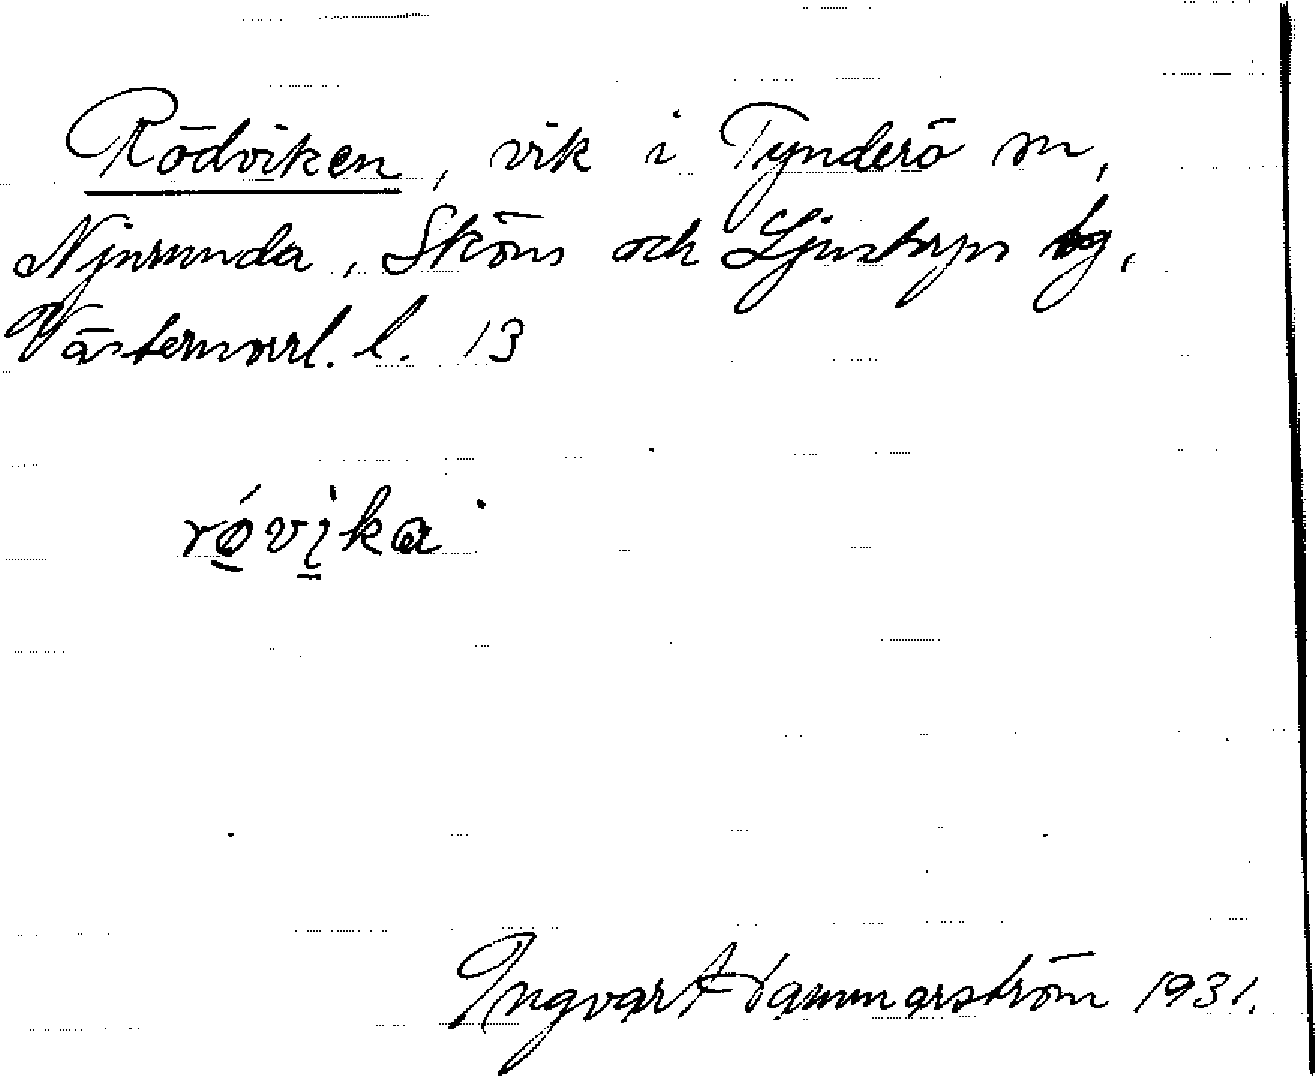 Rödviken, vik i Tynderö sn,
Njurunda, Sköns och Ljustorps tg,
Västernorrl. l. 13
rǿvi̱ka
Ingvar Hammarström 1931.